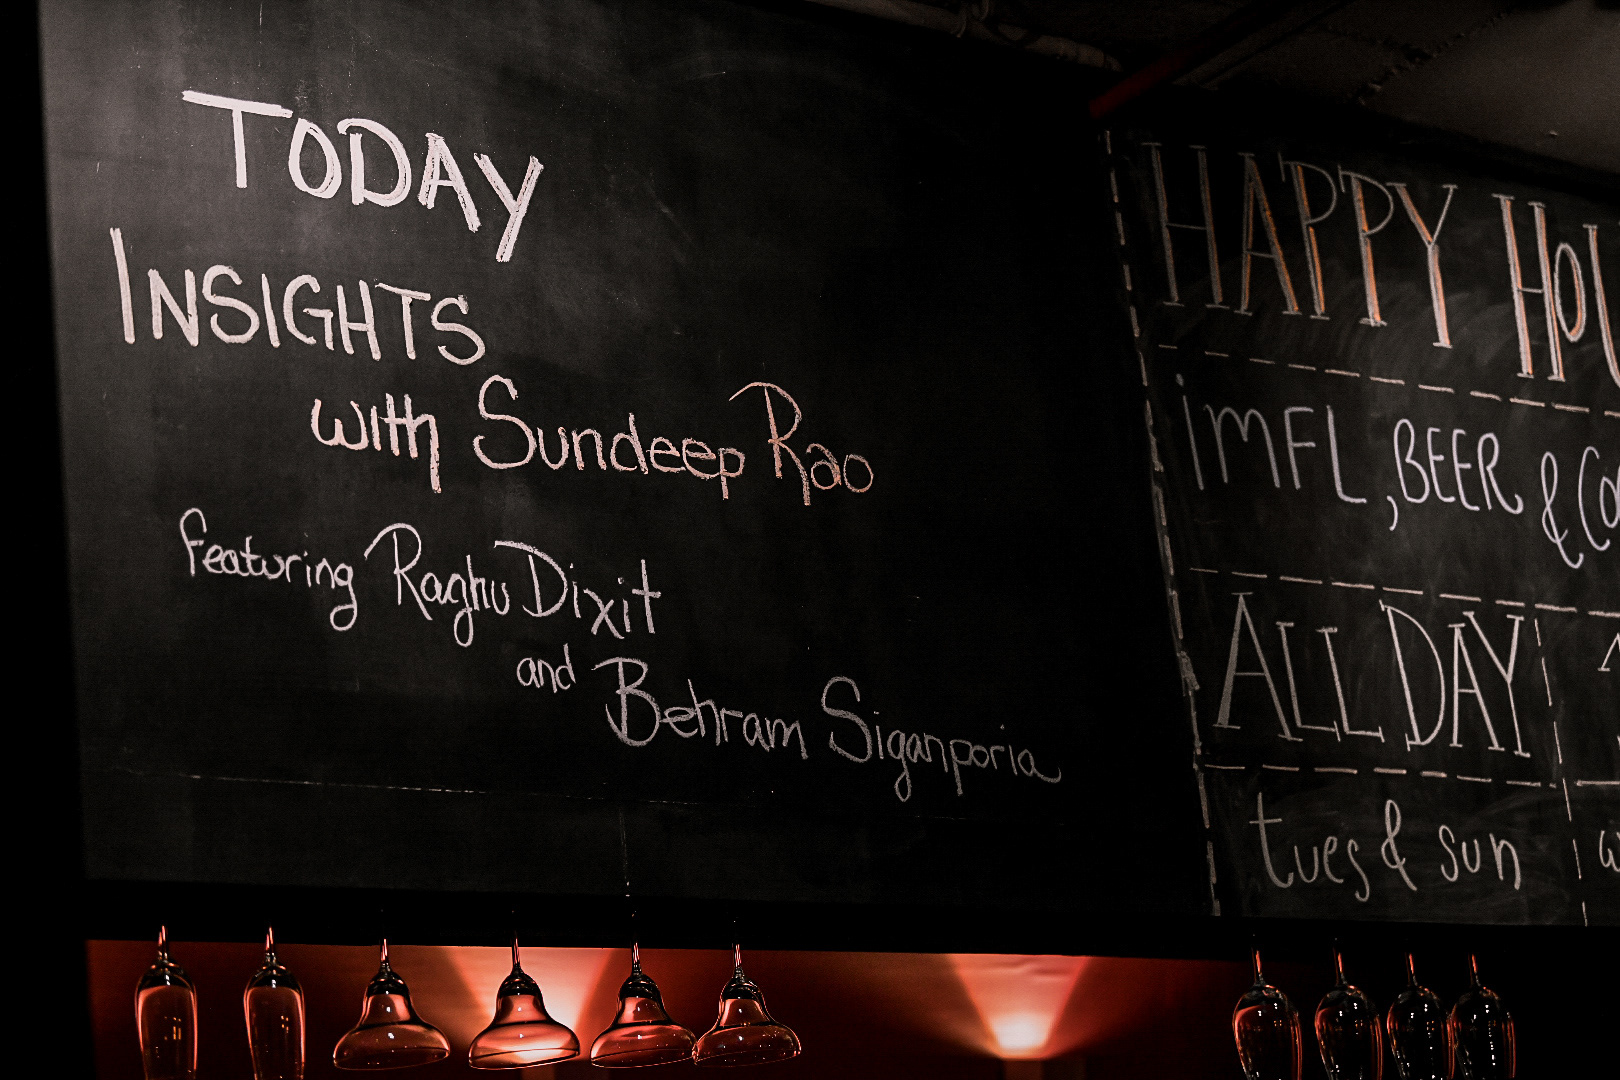 TODAY
INSIGHTS
with Sundeep Rao
featuring Raghu Dixit
and Behram Siganporia
HAPPY
IMFL, BEER &
ALL DAY
tues & sun